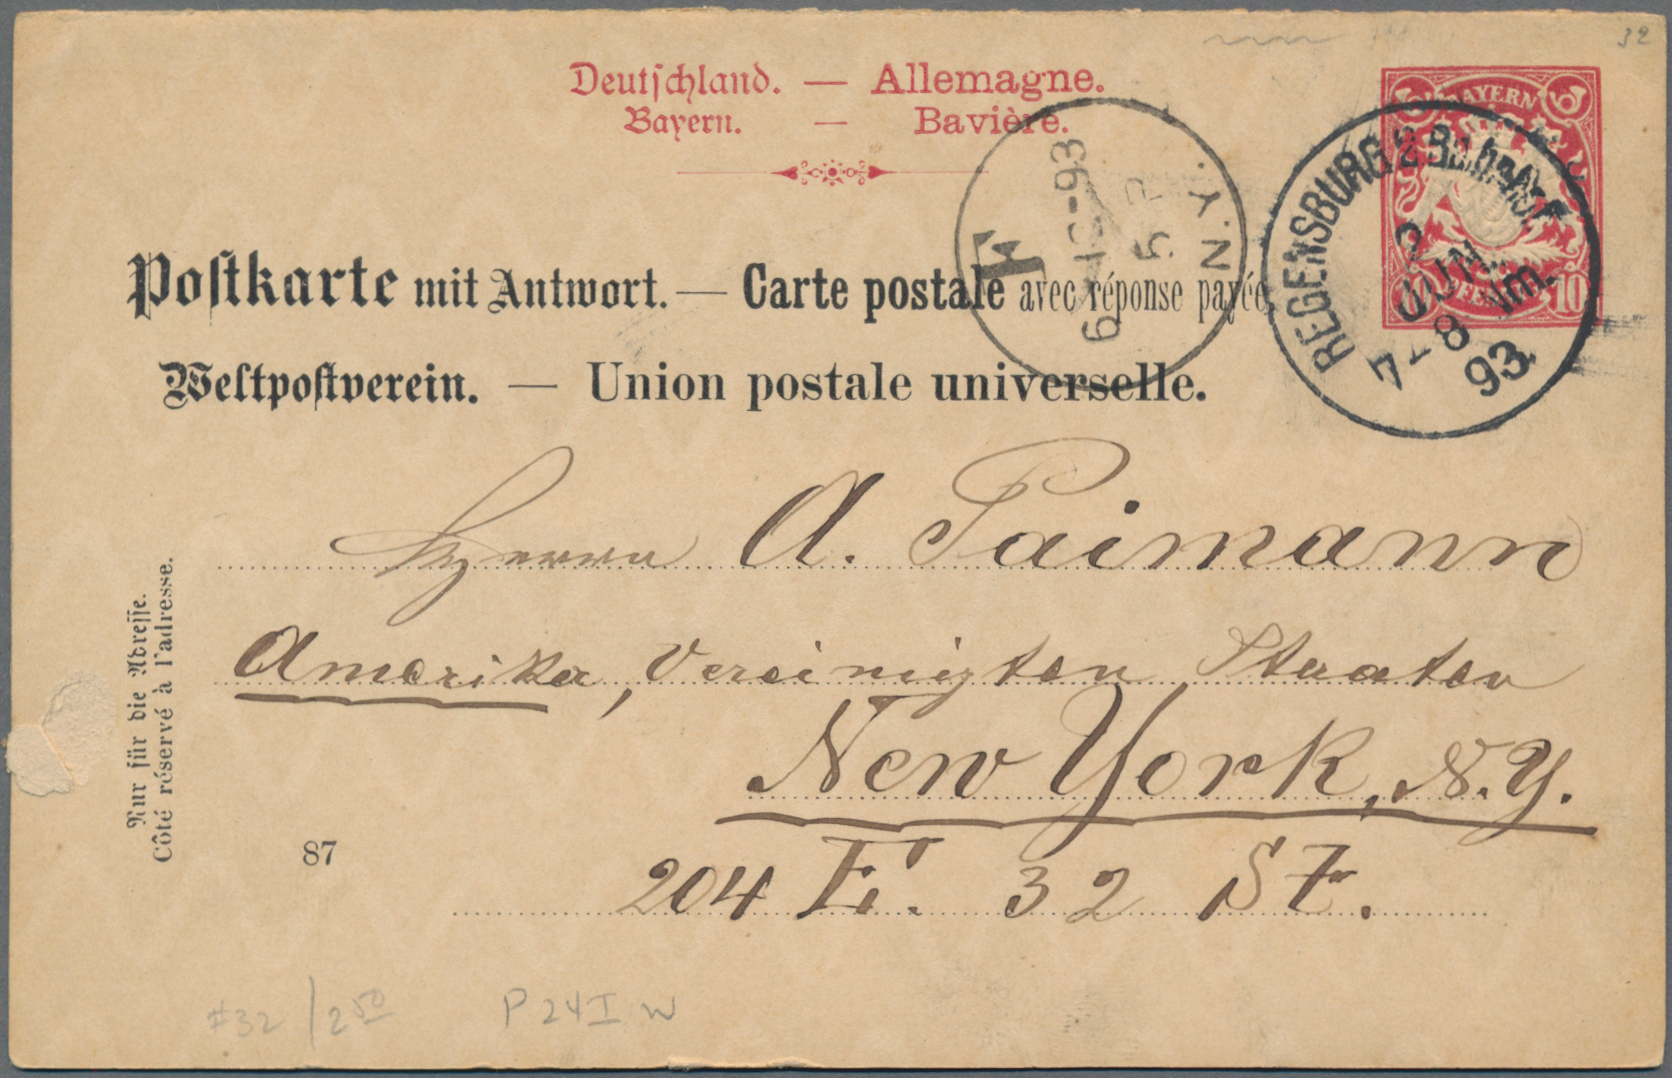 32
Deutſchland. — Allemagne.
Bayern. — Bavière.
BAYERN
10
REGENSBURG 2 Bahnhof
2
JUN.
7-8 Nm.
93
N.Y.
5 P
6-16-93
F
Poſtkarte mit Antwort. — Carte postale avec réponse payée
Weltpoſtverein. — Union postale universelle.
Herrn A. Paimann
Amerika, Vereinigten Staaten
New York, N.Y.
204 E. 32 St.
Nur für die Adreſſe.
Côté réservé à l'adresse.
87
#32 / 2 50 P 24 I W